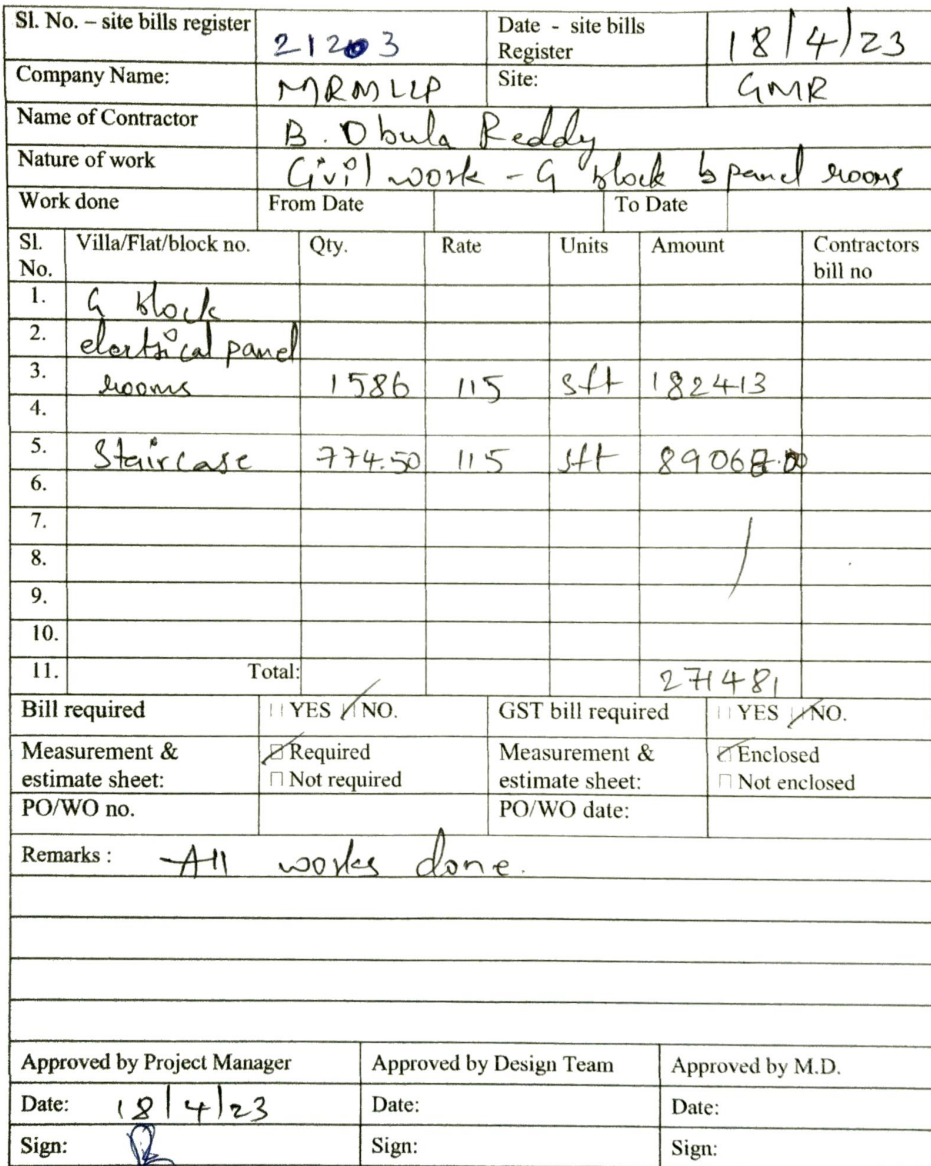 Sl. No. – site bills register 21203 Date - site bills Register 18/4/23
Company Name: MRMLLP Site: GMR
Name of Contractor B. Obula Reddy
Nature of work Civil work - G block panel rooms
Work done From Date To Date
Sl. No. Villa/Flat/block no. Qty. Rate Units Amount Contractors bill no
1. G block
2. electrical panel
3. rooms 1586 115 sft 182413
4.
5. Staircase 774.50 115 sft 89068.00
6.
7.
8.
9.
10.
11. Total: 271481
Bill required YES NO. GST bill required YES NO.
Measurement & estimate sheet: Required Measurement & estimate sheet: Enclosed
Not required Not enclosed
PO/WO no. PO/WO date:
Remarks : All works done.
Approved by Project Manager Approved by Design Team Approved by M.D.
Date: 18/4/23 Date: Date:
Sign: Sign: Sign: